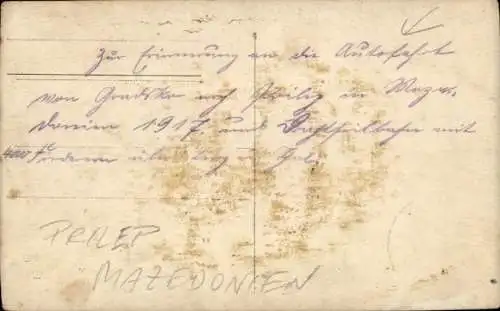 Zur Erinnerung an die Autofahrt
von Gradsko nach Prilep in Maze-
donien 1917 und Drahtseilbahn mit
über Berg u. Tal.
PRILEP
MAZEDONIEN